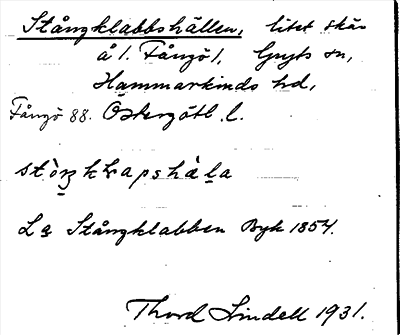 Stångklabbshällen, litet skär
å l. Fångö l, Gryts sn,
Hammarkinds hd,
Fångö 88. Östergötl. l.
La Stångklabben Byk 1854.
Thord Lindell 1931.